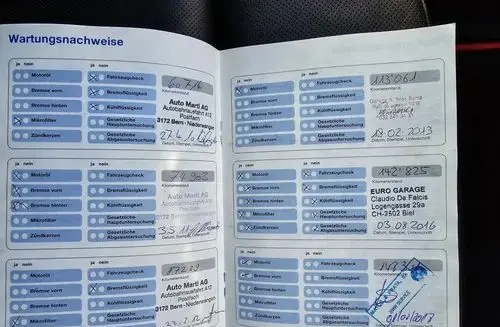 Wartungsnachweise
ja nein
ja nein
Motoröl
Fahrzeugcheck
60714
Kilometerstand
Bremse vorn
Bremsflüssigkeit
Auto Marti AG
Autobahnausfahrt A12
Postfach
3172 Bern - Niederwangen
Bremse hinten
Kühlflüssigkeit
Mikrofilter
Gesetzliche
Hauptuntersuchung
Zündkerzen
Gesetzliche
Abgasuntersuchung
Datum, Stempel, Unterschrift
ja nein
ja nein
Motoröl
Fahrzeugcheck
Kilometerstand
Bremse vorn
Bremsflüssigkeit
Auto Marti AG
Autobahnausfahrt A12
Bremse hinten
Kühlflüssigkeit
Mikrofilter
Gesetzliche
Hauptuntersuchung
Zündkerzen
Gesetzliche
Abgasuntersuchung
Datum, Stempel, Unterschrift
ja nein
ja nein
Motoröl
Fahrzeugcheck
Kilometerstand
Bremse vorn
Bremsflüssigkeit
Auto Marti AG
Autobahnausfahrt A12
Postfach
3172 Bern - Niederwangen
Bremse hinten
Kühlflüssigkeit
Mikrofilter
Gesetzliche
Hauptuntersuchung
Zündkerzen
Gesetzliche
ja nein
ja nein
Motoröl
Fahrzeugcheck
113'061
Kilometerstand
Bremse vorn
Bremsflüssigkeit
Bremse hinten
Kühlflüssigkeit
Mikrofilter
Gesetzliche
Hauptuntersuchung
Zündkerzen
Gesetzliche
Abgasuntersuchung
18.02.2013
Datum, Stempel, Unterschrift
ja nein
ja nein
Motoröl
Fahrzeugcheck
142'825
Kilometerstand
Bremse vorn
Bremsflüssigkeit
EURO GARAGE
Claudio De Falcis
Logengasse 29a
CH-2502 Biel
Bremse hinten
Kühlflüssigkeit
Mikrofilter
Gesetzliche
Hauptuntersuchung
Zündkerzen
Gesetzliche
Abgasuntersuchung
03.08.2016
Datum, Stempel, Unterschrift
ja nein
ja nein
Motoröl
Fahrzeugcheck
Kilometerstand
Bremse vorn
Bremsflüssigkeit
Bremse hinten
Kühlflüssigkeit
Mikrofilter
Gesetzliche
Hauptuntersuchung
Zündkerzen
Gesetzliche
Abgasuntersuchung